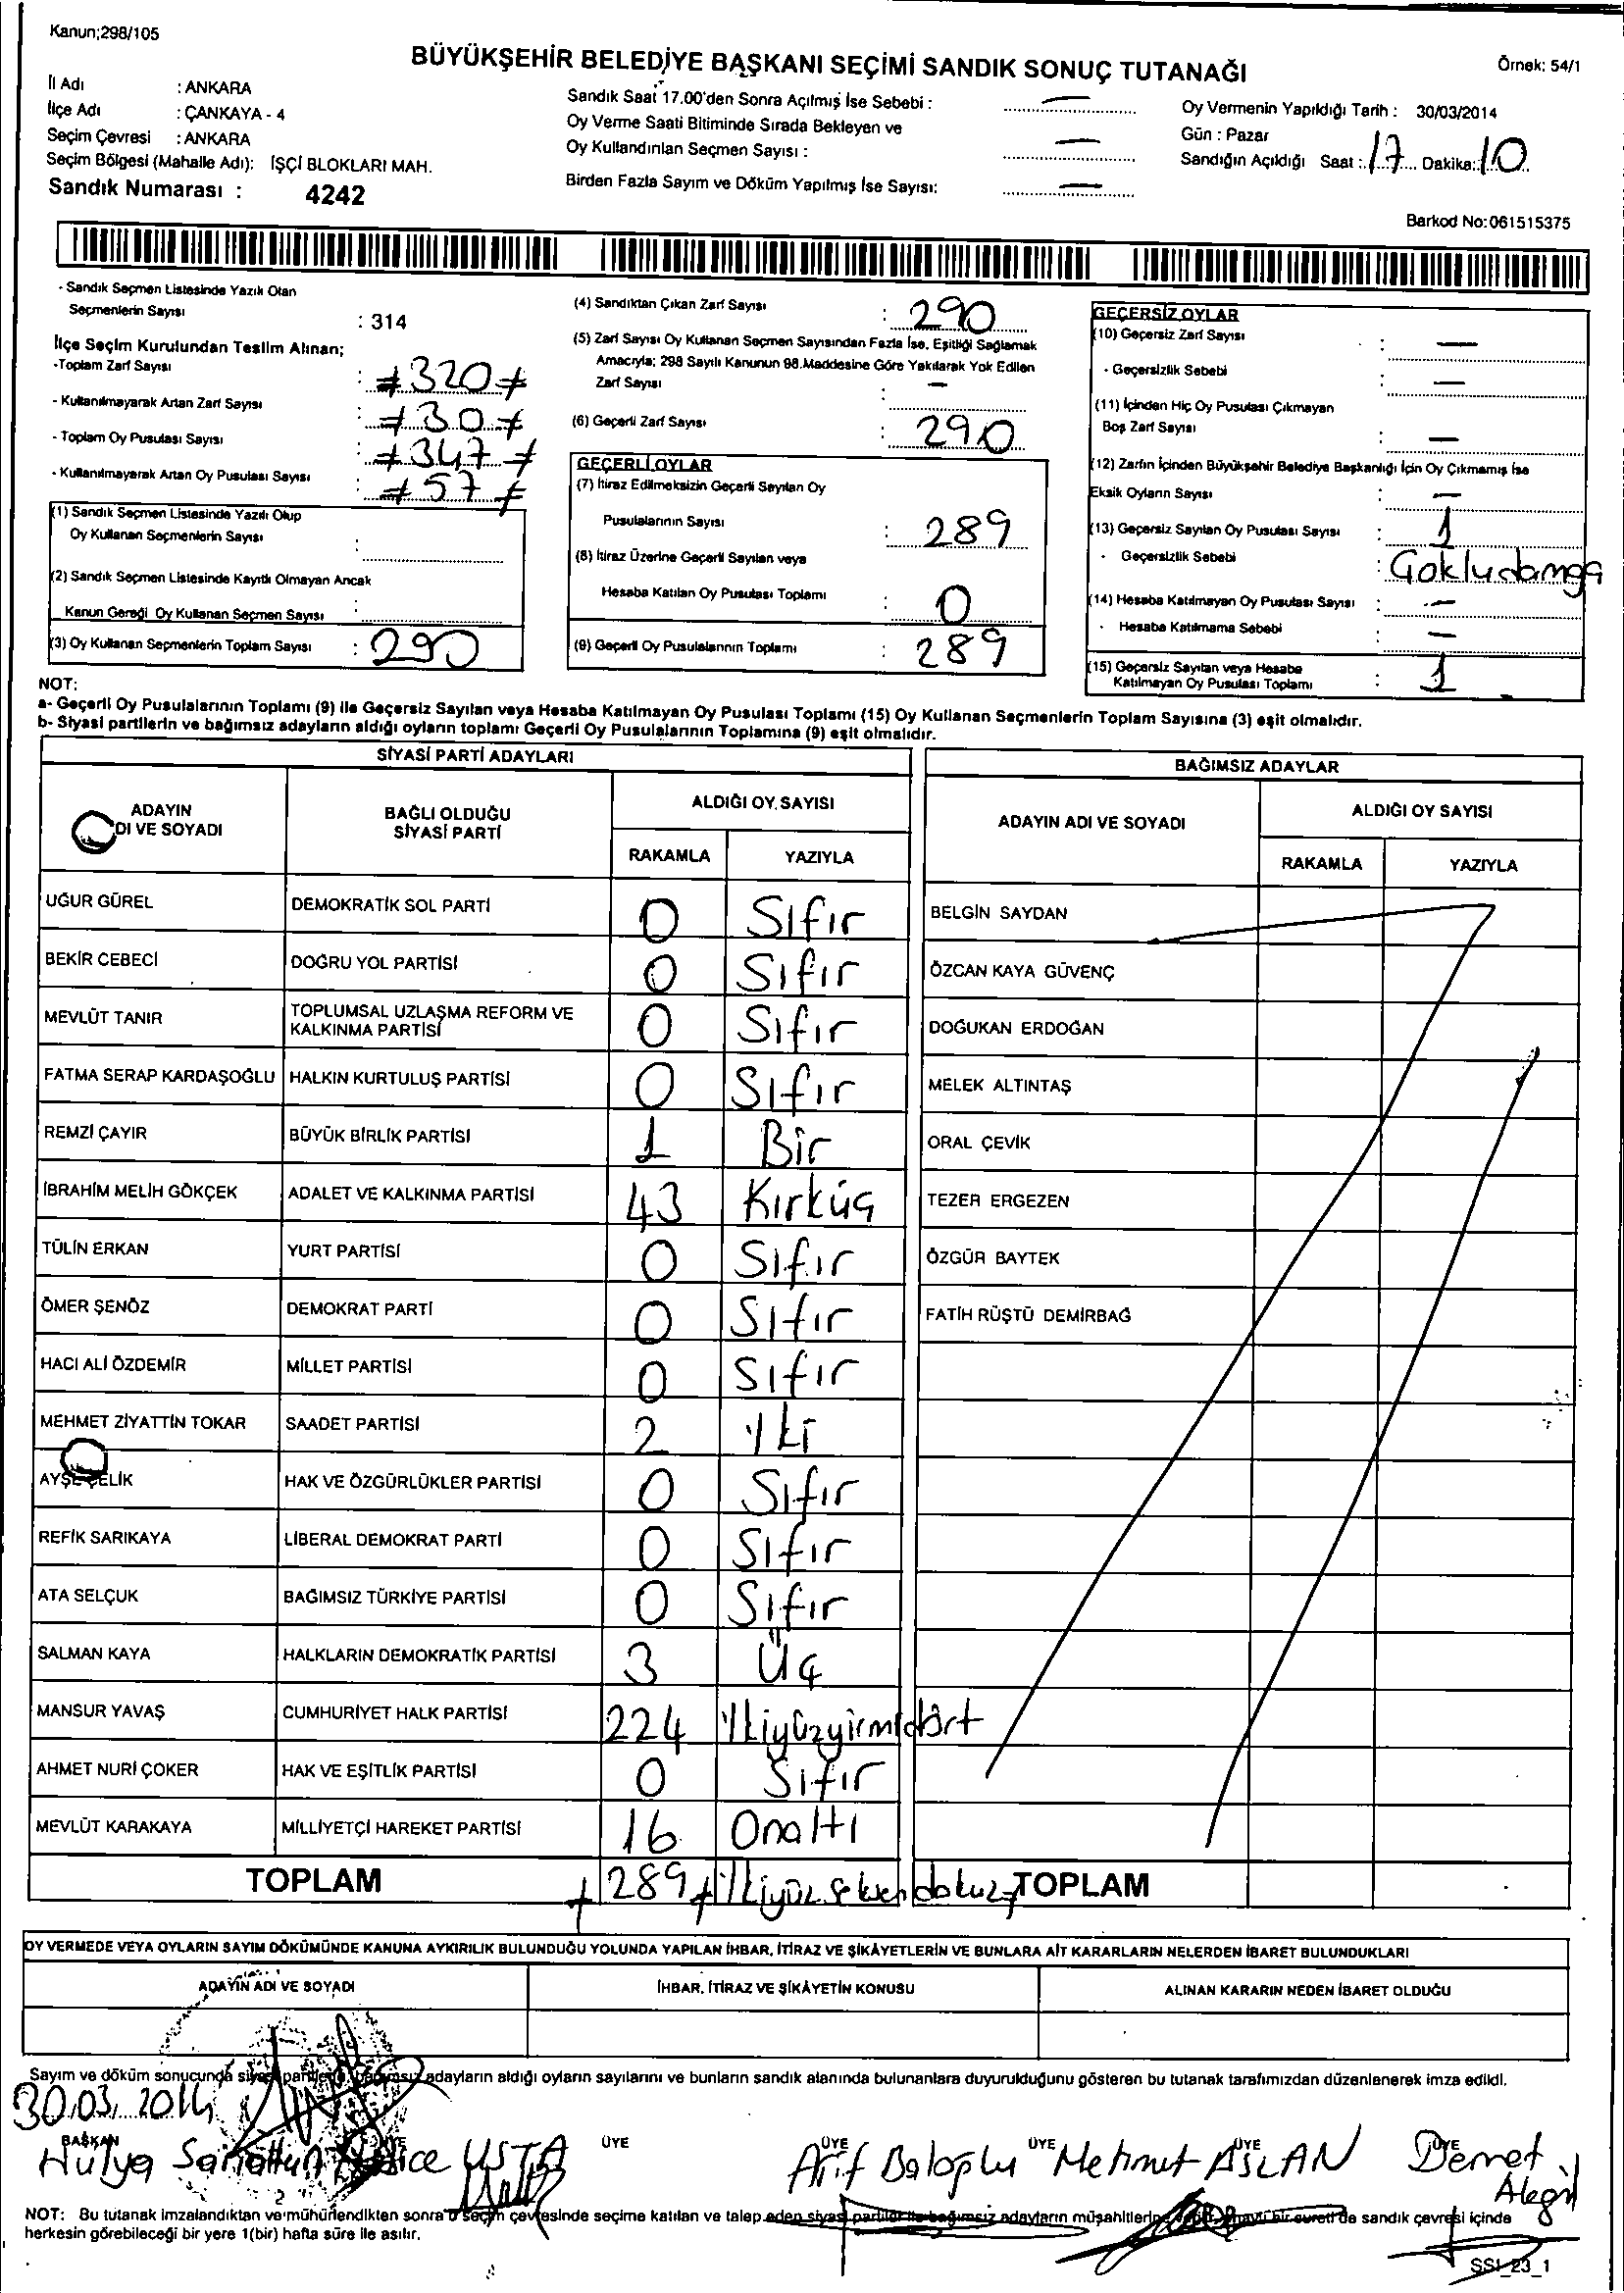 Kanun;298/105
BÜYÜKŞEHİR BELEDİYE BAŞKANI SEÇİMİ SANDIK SONUÇ TUTANAĞI
Örnek: 54/1
İl Adı : ANKARA
İlçe Adı : ÇANKAYA - 4
Seçim Çevresi : ANKARA
Seçim Bölgesi (Mahalle Adı): İŞÇİ BLOKLARI MAH.
Sandık Numarası : 4242
Sandık Saat 17.00'den Sonra Açılmış İse Sebebi : —
Oy Verme Saati Bitiminde Sırada Bekleyen ve
Oy Kullandırılan Seçmen Sayısı : —
Birden Fazla Sayım ve Döküm Yapılmış İse Sayısı: —
Oy Vermenin Yapıldığı Tarih : 30/03/2014
Gün : Pazar
Sandığın Açıldığı Saat : 17 Dakika: 10
Barkod No:061515375
- Sandık Seçmen Listesinde Yazılı Olan
Seçmenlerin Sayısı : 314
İlçe Seçim Kurulundan Teslim Alınan;
-Toplam Zarf Sayısı : 320
- Kullanılmayarak Artan Zarf Sayısı : 30
- Toplam Oy Pusulası Sayısı : 347
- Kullanılmayarak Artan Oy Pusulası Sayısı : 57
(1) Sandık Seçmen Listesinde Yazılı Olup
Oy Kullanan Seçmenlerin Sayısı :
(2) Sandık Seçmen Listesinde Kayıtlı Olmayan Ancak
Kanun Gereği Oy Kullanan Seçmen Sayısı :
(3) Oy Kullanan Seçmenlerin Toplam Sayısı : 290
(4) Sandıktan Çıkan Zarf Sayısı : 290
(5) Zarf Sayısı Oy Kullanan Seçmen Sayısından Fazla İse, Eşitliği Sağlamak
Amacıyla; 298 Sayılı Kanunun 98.Maddesine Göre Yakılarak Yok Edilen
Zarf Sayısı : —
(6) Geçerli Zarf Sayısı : 290
GEÇERLİ OYLAR
(7) İtiraz Edilmeksizin Geçerli Sayılan Oy
Pusulalarının Sayısı : 289
(8) İtiraz Üzerine Geçerli Sayılan veya
Hesaba Katılan Oy Pusulası Toplamı : 0
(9) Geçerli Oy Pusulalarının Toplamı : 289
GEÇERSİZ OYLAR
(10) Geçersiz Zarf Sayısı : —
- Geçersizlik Sebebi : —
(11) İçinden Hiç Oy Pusulası Çıkmayan
Boş Zarf Sayısı : —
(12) Zarfın İçinden Büyükşehir Belediye Başkanlığı İçin Oy Çıkmamış İse
Eksik Oyların Sayısı : —
(13) Geçersiz Sayılan Oy Pusulası Sayısı : 1
- Geçersizlik Sebebi : Çokludamga
(14) Hesaba Katılmayan Oy Pusulası Sayısı : —
- Hesaba Katılmama Sebebi : —
(15) Geçersiz Sayılan veya Hesaba
Katılmayan Oy Pusulası Toplamı : 1
NOT:
a- Geçerli Oy Pusulalarının Toplamı (9) ile Geçersiz Sayılan veya Hesaba Katılmayan Oy Pusulası Toplamı (15) Oy Kullanan Seçmenlerin Toplam Sayısına (3) eşit olmalıdır.
b- Siyasi partilerin ve bağımsız adayların aldığı oyların toplamı Geçerli Oy Pusulalarının Toplamına (9) eşit olmalıdır.
SİYASİ PARTİ ADAYLARI
ADAYIN
DI VE SOYADI
BAĞLI OLDUĞU
SİYASİ PARTİ
ALDIĞI OY SAYISI
RAKAMLA YAZIYLA
UĞUR GÜREL DEMOKRATİK SOL PARTİ 0 Sıfır
BEKİR CEBECİ DOĞRU YOL PARTİSİ 0 Sıfır
MEVLÜT TANIR TOPLUMSAL UZLAŞMA REFORM VE
KALKINMA PARTİSİ 0 Sıfır
FATMA SERAP KARDAŞOĞLU HALKIN KURTULUŞ PARTİSİ 0 Sıfır
REMZİ ÇAYIR BÜYÜK BİRLİK PARTİSİ 1 Bir
İBRAHİM MELİH GÖKÇEK ADALET VE KALKINMA PARTİSİ 43 Kırküç
TÜLİN ERKAN YURT PARTİSİ 0 Sıfır
ÖMER ŞENÖZ DEMOKRAT PARTİ 0 Sıfır
HACI ALİ ÖZDEMİR MİLLET PARTİSİ 0 Sıfır
MEHMET ZİYATTİN TOKAR SAADET PARTİSİ 2 İki
AYŞE ÇELİK HAK VE ÖZGÜRLÜKLER PARTİSİ 0 Sıfır
REFİK SARIKAYA LİBERAL DEMOKRAT PARTİ 0 Sıfır
ATA SELÇUK BAĞIMSIZ TÜRKİYE PARTİSİ 0 Sıfır
SALMAN KAYA HALKLARIN DEMOKRATİK PARTİSİ 3 Üç
MANSUR YAVAŞ CUMHURİYET HALK PARTİSİ 224 İkiyüzyirmidört
AHMET NURİ ÇOKER HAK VE EŞİTLİK PARTİSİ 0 Sıfır
MEVLÜT KARAKAYA MİLLİYETÇİ HAREKET PARTİSİ 16 Onaltı
TOPLAM 289 İkiyüzseksendokuz
BAĞIMSIZ ADAYLAR
ADAYIN ADI VE SOYADI
ALDIĞI OY SAYISI
RAKAMLA YAZIYLA
BELGİN SAYDAN
ÖZCAN KAYA GÜVENÇ
DOĞUKAN ERDOĞAN
MELEK ALTINTAŞ
ORAL ÇEVİK
TEZER ERGEZEN
ÖZGÜR BAYTEK
FATİH RÜŞTÜ DEMİRBAĞ
TOPLAM
OY VERMEDE VEYA OYLARIN SAYIM DÖKÜMÜNDE KANUNA AYKIRILIK BULUNDUĞU YOLUNDA YAPILAN İHBAR, İTİRAZ VE ŞİKÂYETLERİN VE BUNLARA AİT KARARLARIN NELERDEN İBARET BULUNDUKLARI
ADAYIN ADI VE SOYADI İHBAR, İTİRAZ VE ŞİKÂYETİN KONUSU ALINAN KARARIN NEDEN İBARET OLDUĞU
Sayım ve döküm sonucunda adayların aldığı oyların sayılarını ve bunların sandık alanında bulunanlara duyurulduğunu gösteren bu tutanak tarafımızdan düzenlenerek imza edildi.
30.03.2014
BAŞKAN ÜYE ÜYE ÜYE ÜYE ÜYE
Hülya USTA Arif Mehmet ASLAN Demet
NOT: Bu tutanak imzalandıktan ve mühürlendikten sonra seçim çevresinde seçime katılan ve talep eden siyasi partiler ile bağımsız adayların müşahitlerine bir sureti de sandık çevresi içinde
herkesin görebileceği bir yere 1(bir) hafta süre ile asılır.
SSI_23_1